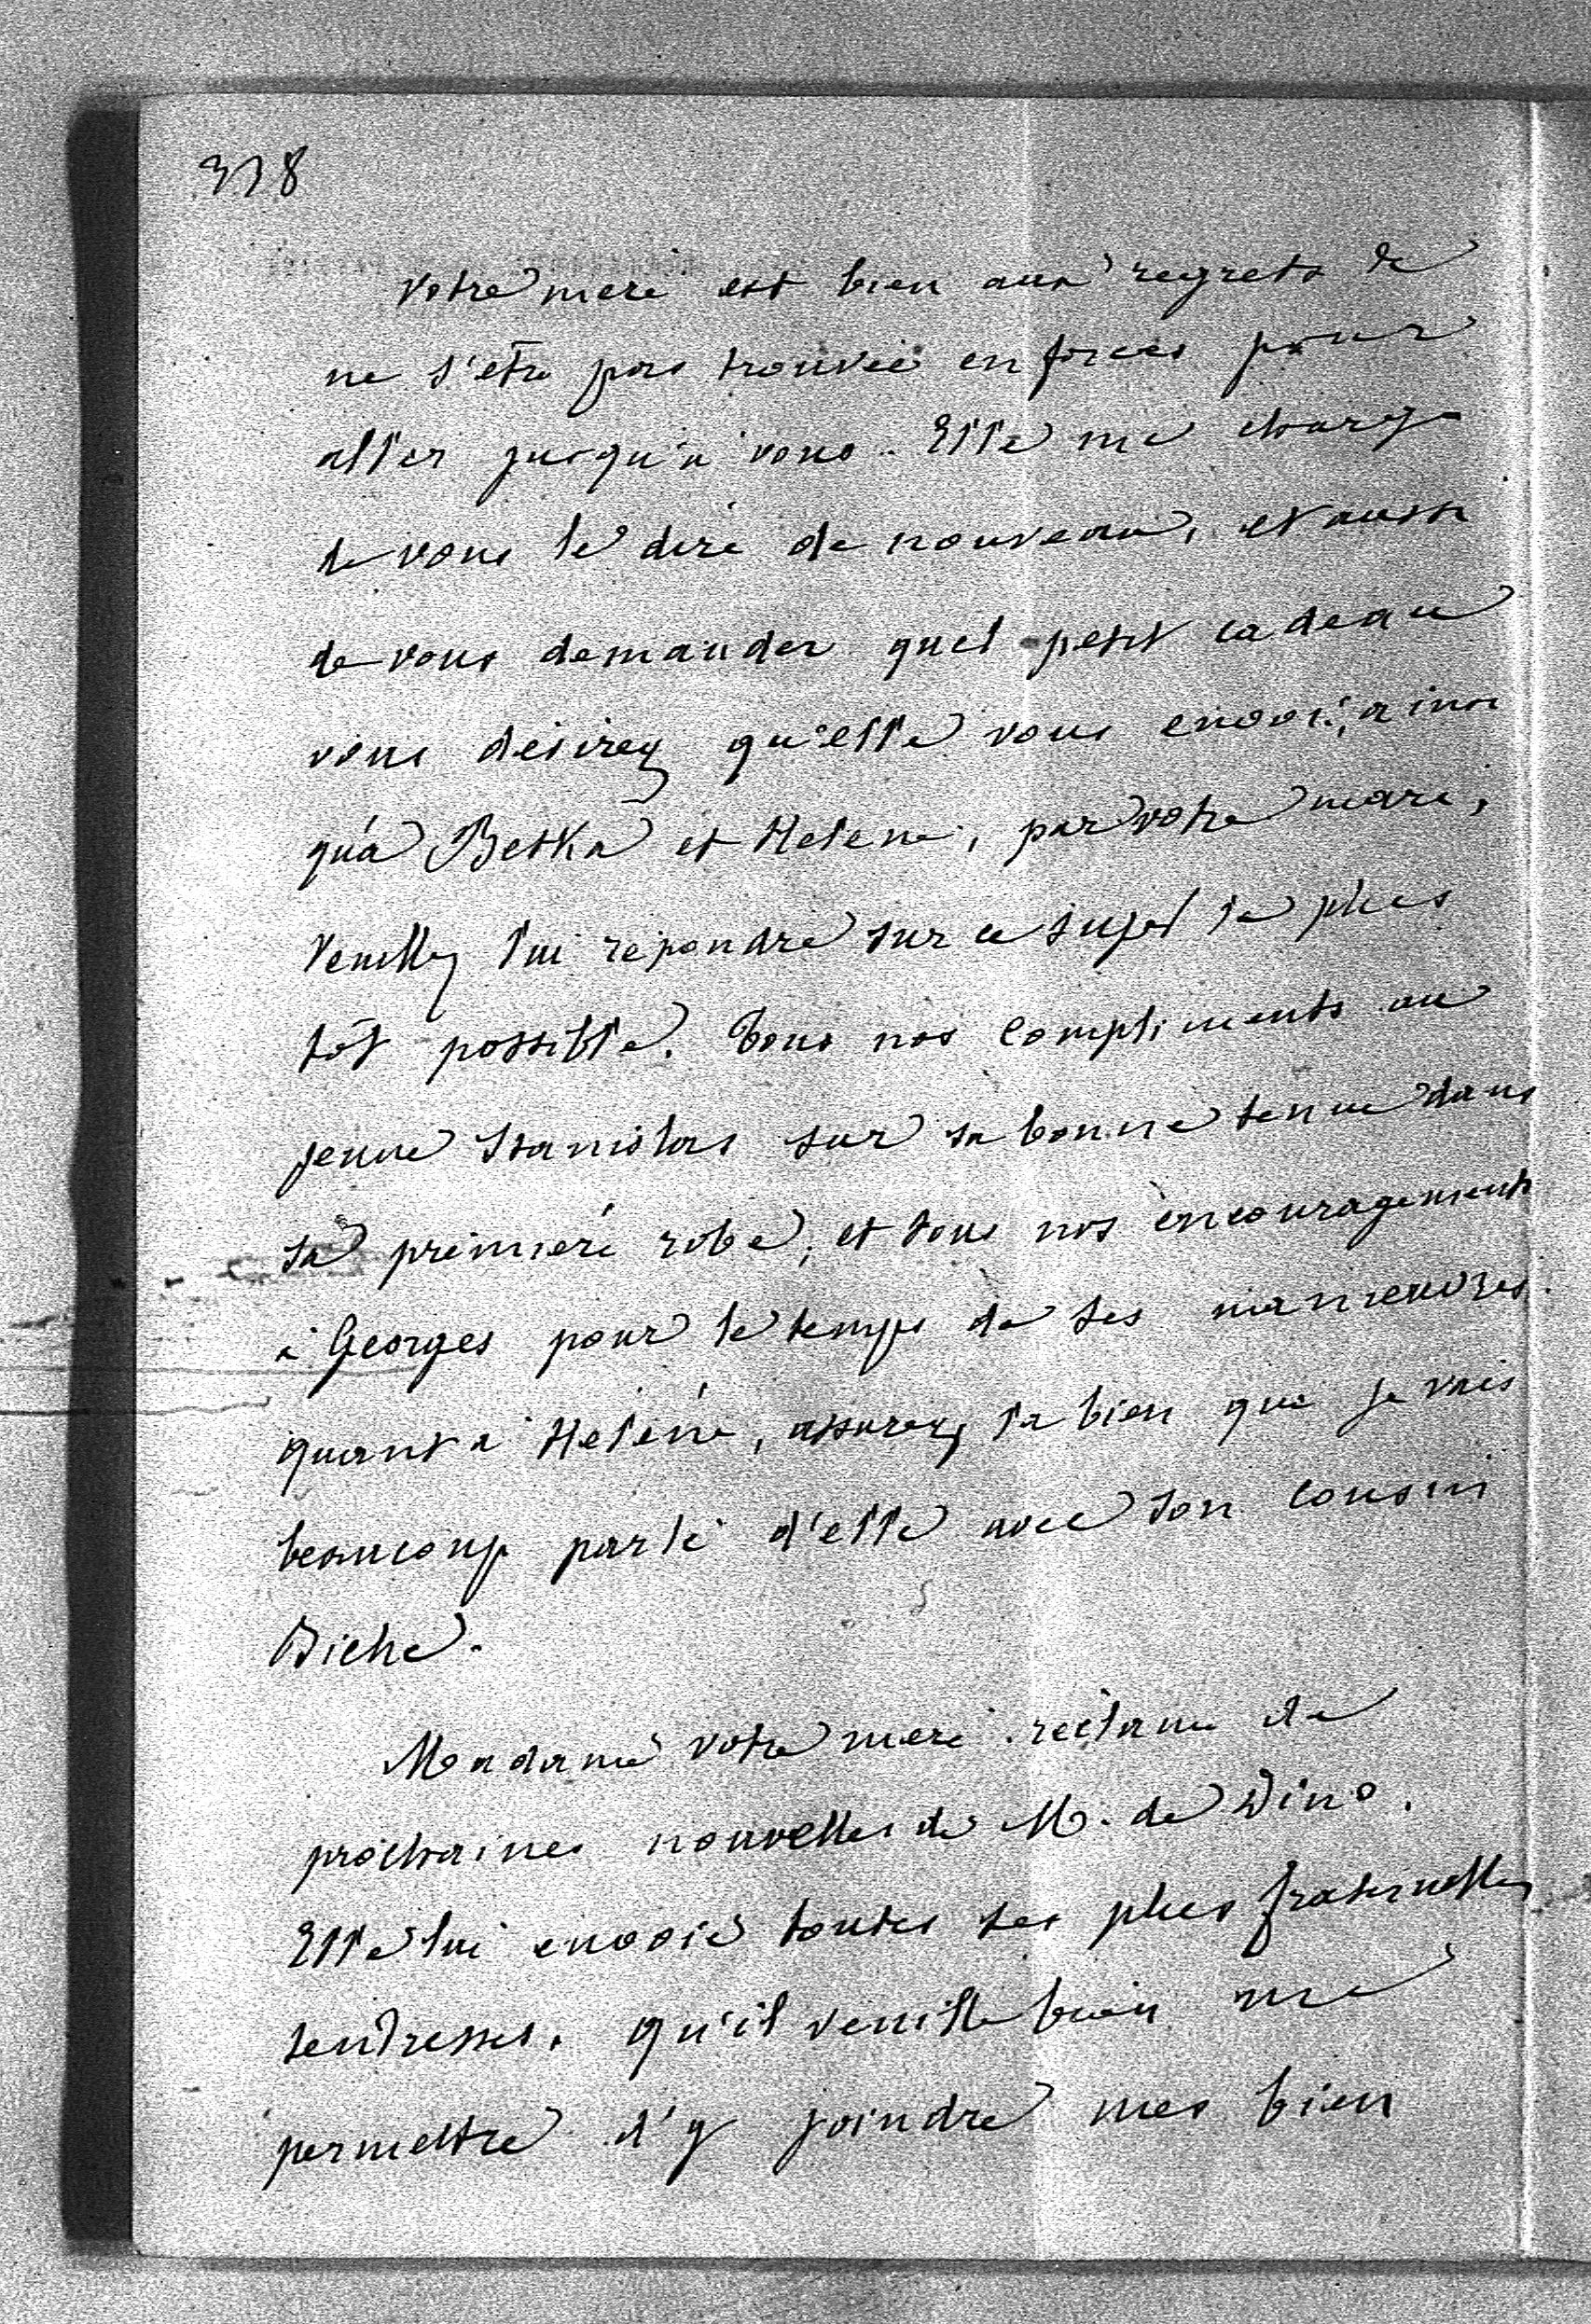 338
Votre mère est bien aux regrets de
ne s'être pas trouvée en forces pour
aller jusqu'à vous. Elle me charge
de vous le dire de nouveau, et aussi
de vous demander quel petit cadeau
vous désirez qu'elle vous envoie, ainsi
qu'à Betka et Hélène, par votre mari,
Veuillez lui répondre sur ce sujet le plus
tôt possible. Tous nos compliments au
jeune Stanislas sur sa bonne tenue dans
sa première robe, et tous nos encouragements
à Georges pour le temps de ses manœuvres.
quant à Hélène, assurez la bien que je vais
beaucoup parler d'elle avec son cousin
Biche.
Madame votre mère réclame de
prochaines nouvelles de M. de Dino.
Elle lui envoie toutes ses plus fraternelles
tendresses. qu'il veuille bien me
permettre d'y joindre mes bien